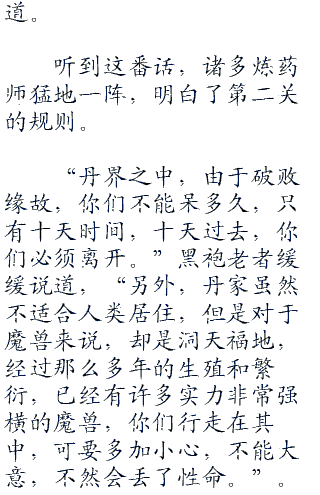 道。
听到这番话，诸多炼药
师猛地一阵，明白了第二关
的规则。
“丹界之中，由于破败
缘故，你们不能呆多久，只
有十天时间，十天过去，你
们必须离开。”黑袍老者缓
缓说道，“另外，丹家虽然
不适合人类居住，但是对于
魔兽来说，却是洞天福地，
经过那么多年的生殖和繁
衍，已经有许多实力非常强
横的魔兽，你们行走在其
中，可要多加小心，不能大
意，不然会丢了性命。”。